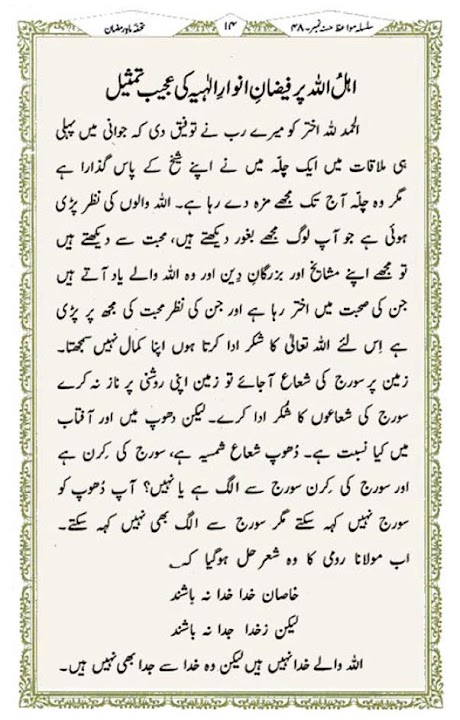 سلسلہ مواعظ حسنہ نمبر۔ ۴۸
۱۴
تحفۂ ماہِ رمضان
اہلُ اللہ پر فیضانِ انوارِ الٰہیہ کی عجیب تمثیل
الحمد للہ اختر کو میرے رب نے توفیق دی کہ جوانی میں پہلی
ہی ملاقات میں ایک چلّہ میں نے اپنے شیخ کے پاس گذارا ہے
مگر وہ چلّہ آج تک مجھے مزہ دے رہا ہے۔ اللہ والوں کی نظر پڑی
ہوئی ہے جو آپ لوگ مجھے بغور دیکھتے ہیں، محبت سے دیکھتے ہیں
تو مجھے اپنے مشایخ اور بزرگانِ دِین اور وہ اللہ والے یاد آتے ہیں
جن کی صحبت میں اختر رہا ہے اور جن کی نظر محبت کی مجھ پر پڑی
ہے اِس لئے اللہ تعالیٰ کا شکر ادا کرتا ہوں اپنا کمال نہیں سمجھتا۔
زمین پر سورج کی شعاع آجائے تو زمین اپنی روشنی پر ناز نہ کرے
سورج کی شعاعوں کا شُکر ادا کرے۔ لیکن دھوپ میں اور آفتاب
میں کیا نسبت ہے۔ دُھوپ شعاع شمسیہ ہے، سورج کی کِرن ہے
اور سورج کی کِرن سورج سے الگ ہے یا نہیں؟ آپ دُھوپ کو
سورج نہیں کہہ سکتے مگر سورج سے الگ بھی نہیں کہہ سکتے۔
اب مولانا رومی کا وہ شعر حل ہوگیا کہ
خاصانِ خدا خدا نہ باشند
لیکن زخدا جدا نہ باشند
اللہ والے خدا نہیں ہیں لیکن وہ خدا سے جدا بھی نہیں ہیں۔